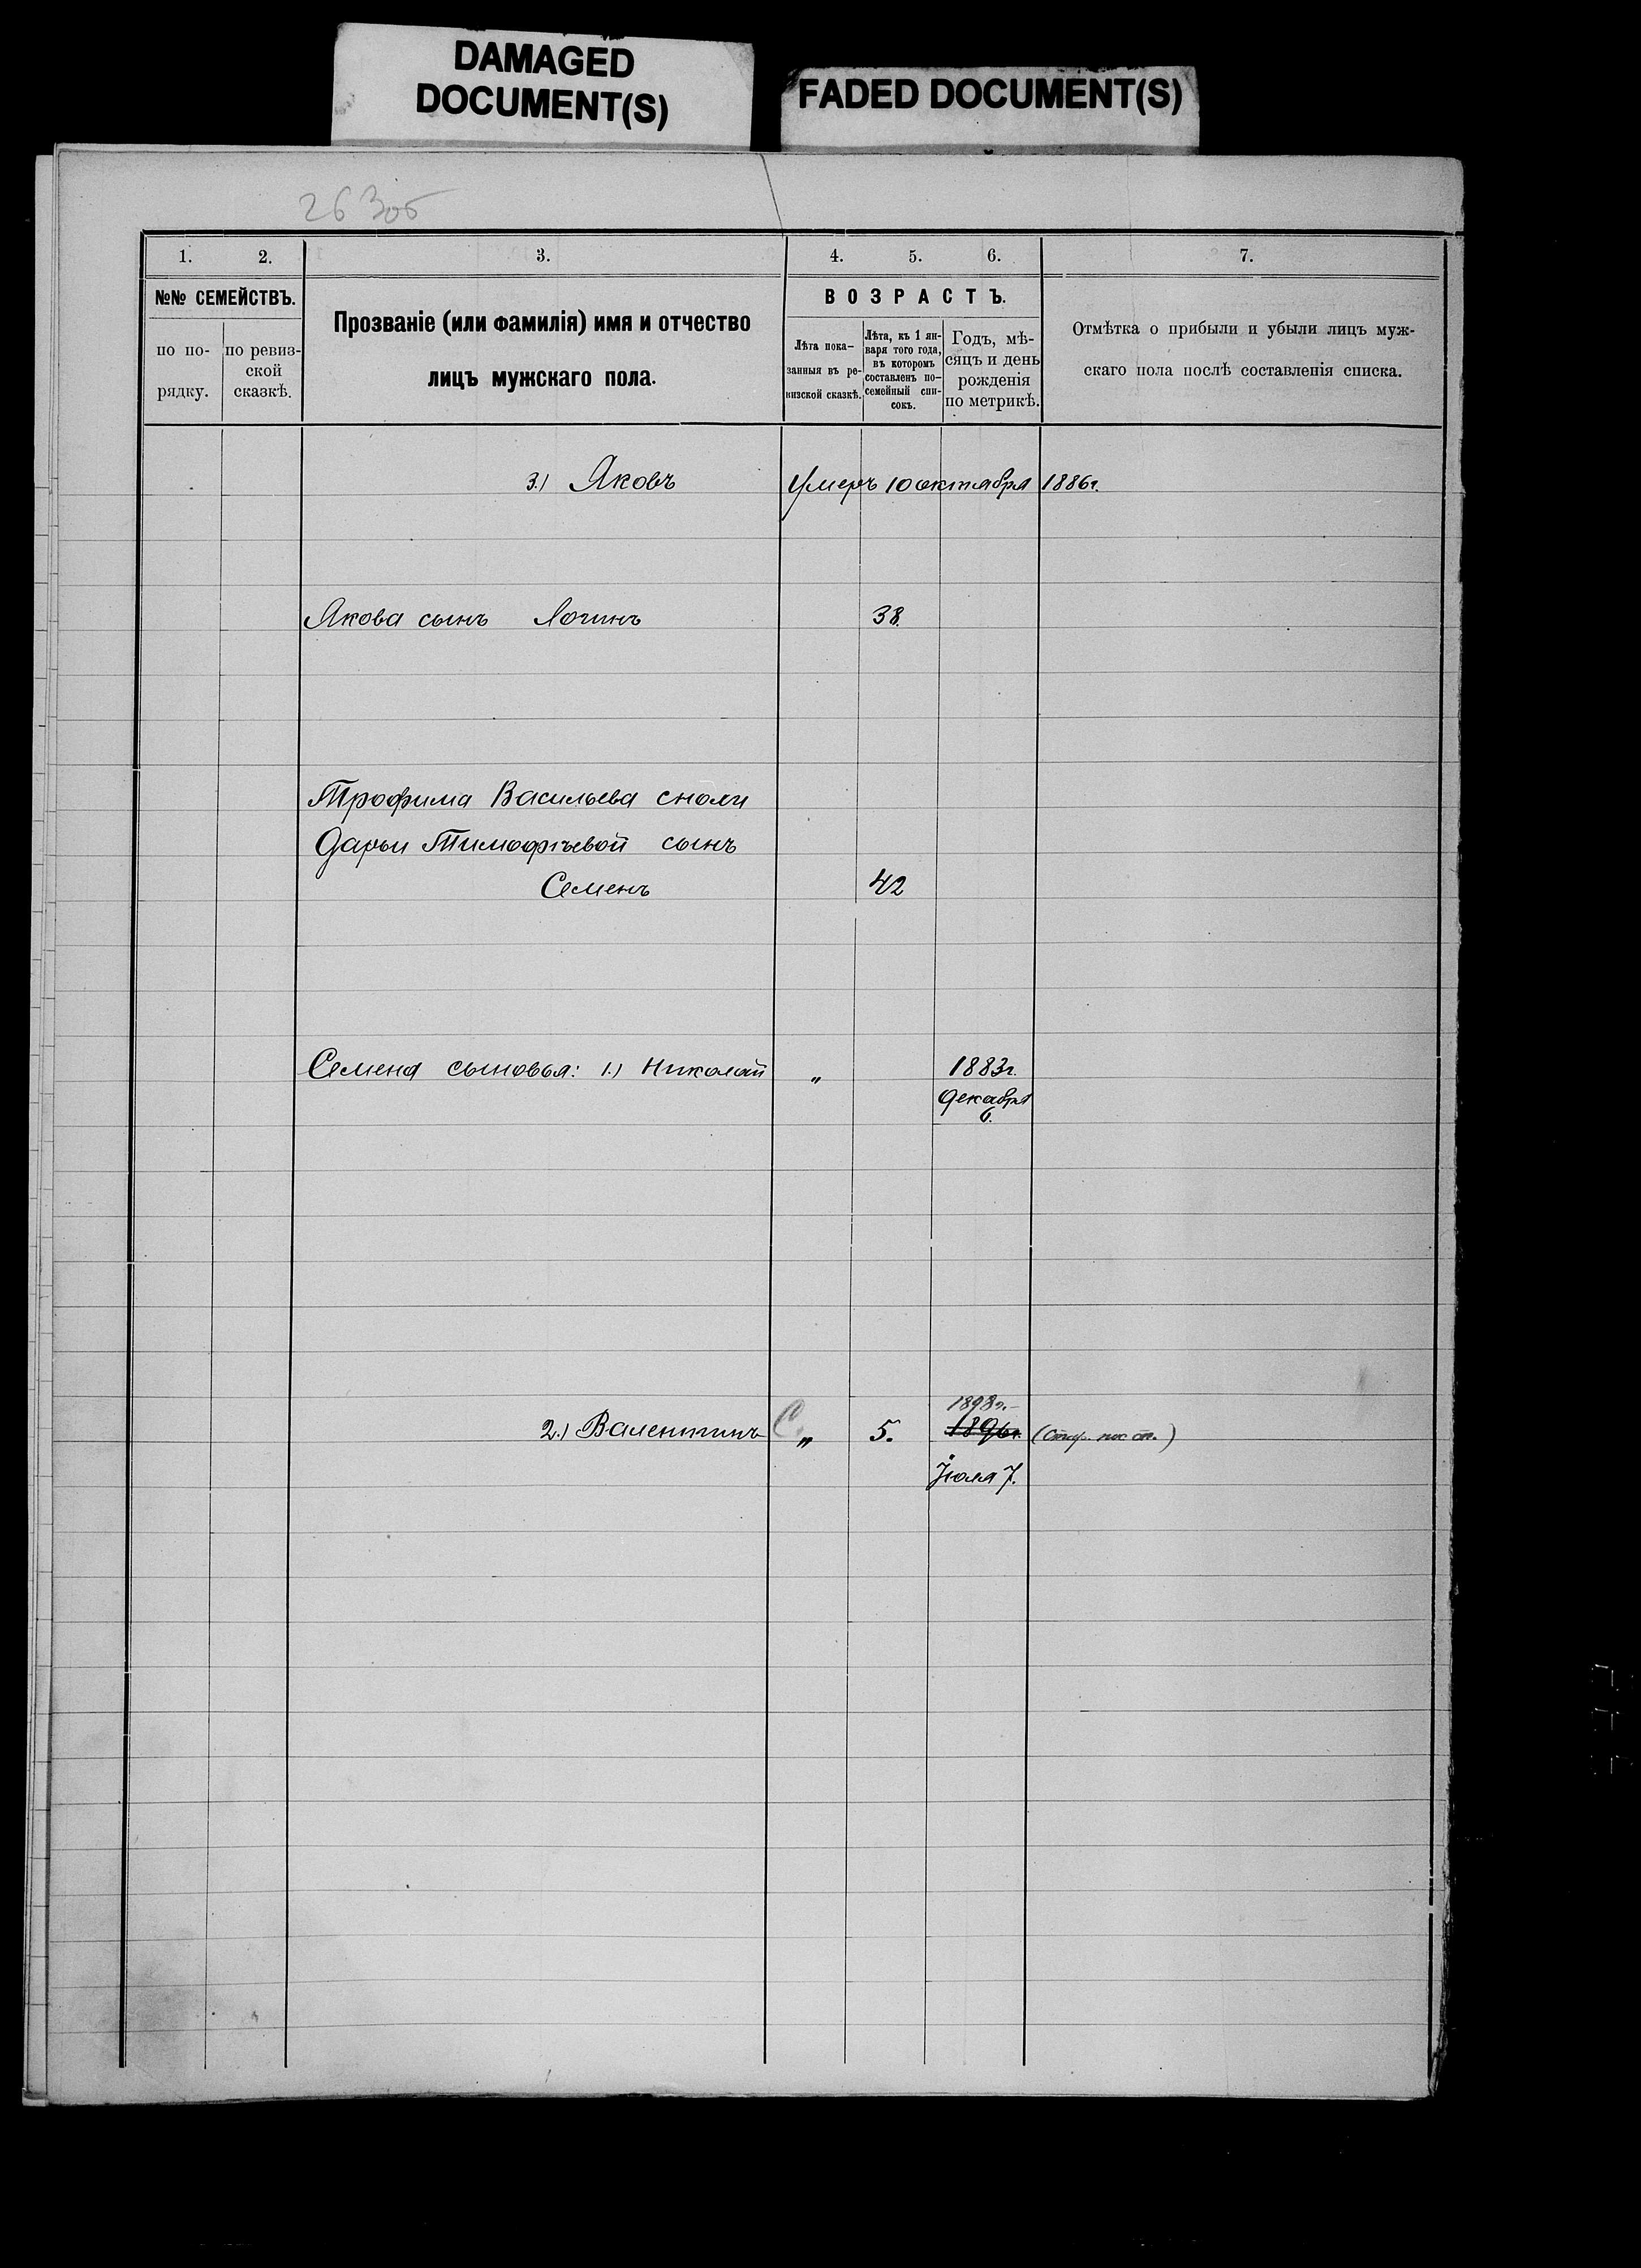 DAMAGED
DOCUMENT(S)
FADED DOCUMENT(S)
263об
1. 2. 3. 4. 5. 6. 7.
№№ СЕМЕЙСТВЪ.
по по-
рядку.
по ревиз-
ской
сказкѣ.
Прозваніе (или фамилія) имя и отчество
лицъ мужскаго пола.
ВОЗРАСТЪ.
Лѣта пока-
занныя въ ре-
визской сказкѣ.
Лѣта, къ 1 ян-
варя того года,
въ которомъ
составленъ по-
семейный спи-
сокъ.
Годъ, мѣ-
сяцъ и день
рожденія
по метрикѣ.
Отмѣтка о прибыли и убыли лицъ муж-
скаго пола послѣ составленія списка.
3.) Яковъ Умеръ 10 октября 1886г.
Якова сынъ Логинъ 38.
Трофима Васильева снохи
Дарьи Тимофѣевой сынъ
Семенъ 42
Семена сыновья: 1.) Николай „ 1883г.
декабря
6.
1898г.
2.) Валентинъ „ 5. 1896г.
Іюля 7.